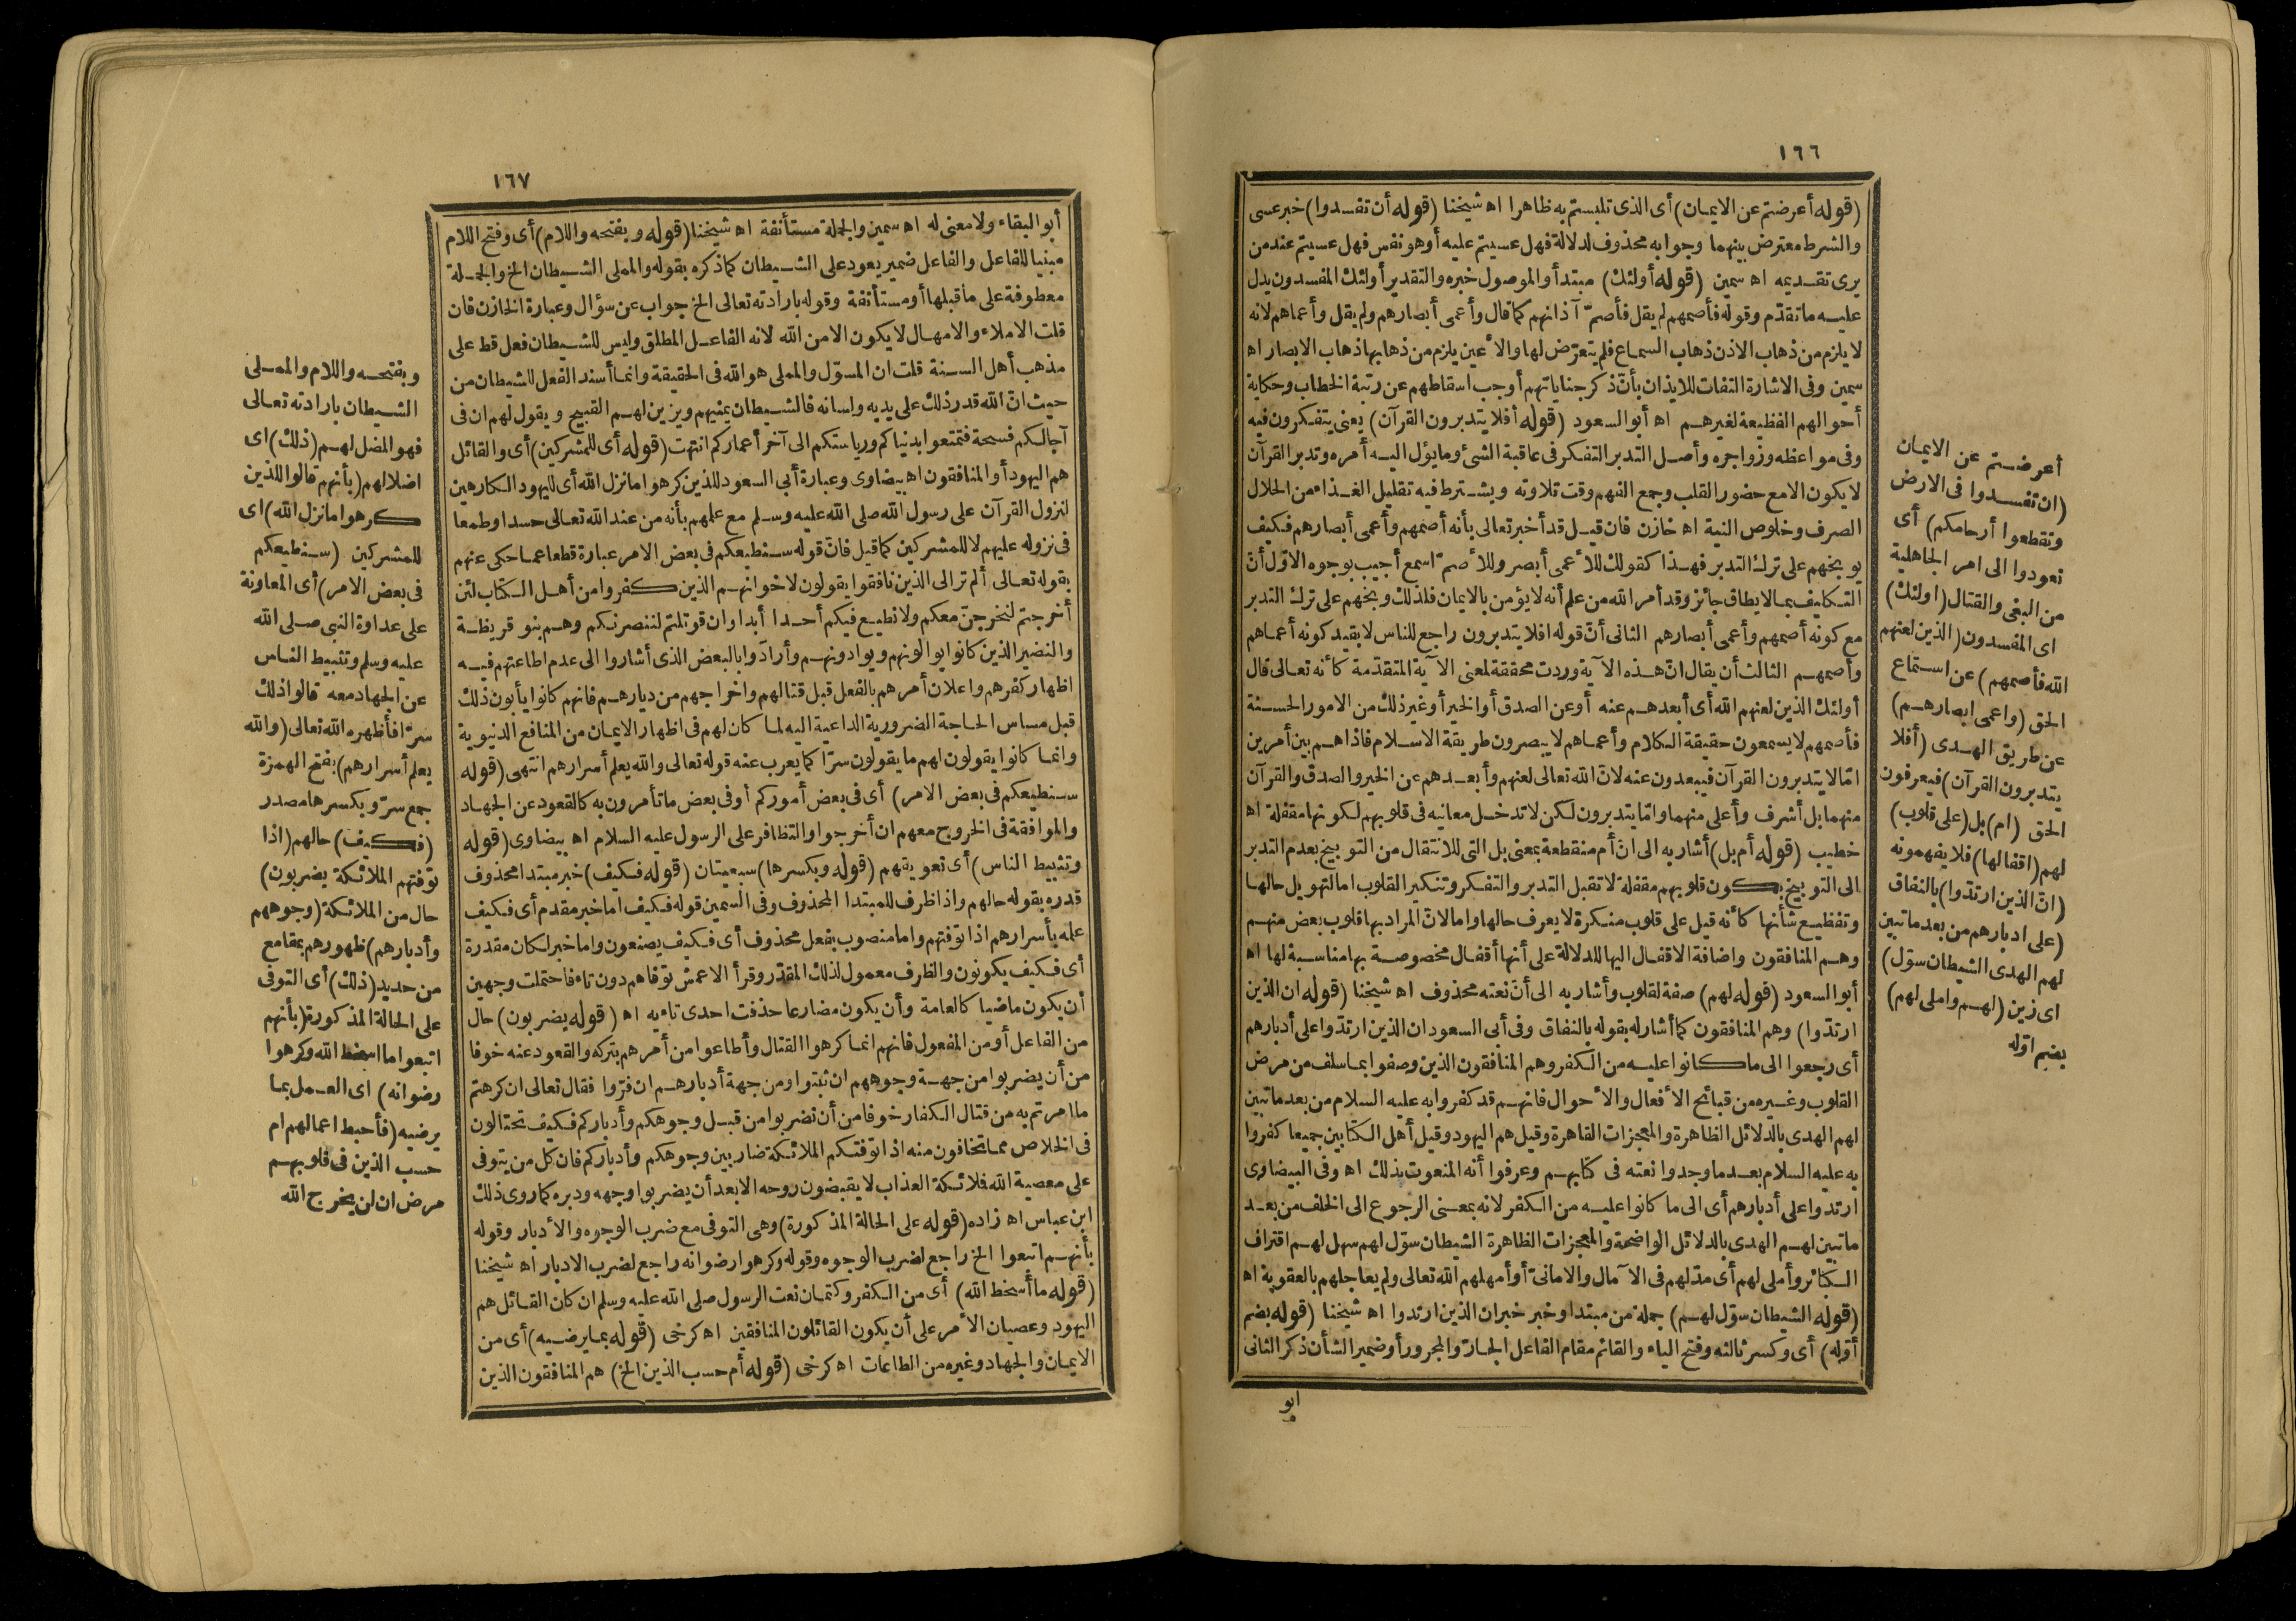 ١٦٦
(قوله أعرضتم عن الايمان) أى الذى تلبستم به ظاهرا اه شيخنا (قوله أن تفسدوا) خبر عسى
والشرط معترض بينهما وجوابه محذوف لدلالة فهل عسيتم عليه أو هو نفس فهل عسيتم عند من
يرى تقديمه اه سمين (قوله أولئك) مبتدأ والموصول خبره والتقدير أولئك المفسدون يدل
عليه ما تقدّم وقوله فأصمهم لم يقل فأصمّ آذانهم كما قال وأعمى أبصارهم ولم يقل وأعماهم لانه
لا يلزم من ذهاب الاذن ذهاب السماع فلم يتعرّض لها والأعين يلزم من ذهابها ذهاب الابصار اه
سمين وفى الاشارة التفات للايذان بأنّ ذكر جناياتهم أوجب اسقاطهم عن رتبة الخطاب وحكاية
أحوالهم الفظيعة لغيرهم اه أبو السعود (قوله أفلا يتدبرون القرآن) يعنى يتفكرون فيه
وفى مواعظه وزواجره وأصل التدبر التفكر فى عاقبة الشئ وما يؤل اليه أمره وتدبر القرآن
لا يكون الا مع حضور القلب وجمع الفهم وقت تلاوته ويشترط فيه تقليل الغذاء من الحلال
الصرف وخلوص النية اه خازن فان قيل قد أخبر تعالى بأنه أصمهم وأعمى أبصارهم فكيف
يوبخهم على ترك التدبر فهذا كقولك للأعمى أبصر وللأصمّ اسمع أجيب بوجوه الاوّل أنّ
التكليف بما لا يطاق جائز وقد أمر الله من علم أنه لا يؤمن بالايمان فلذلك وبخهم على ترك التدبر
مع كونه أصمهم وأعمى أبصارهم الثانى أنّ قوله افلا يتدبرون راجع للناس لا بقيد كونه أعماهم
وأصمهم الثالث أن يقال انّ هذه الآية وردت محققة لمعنى الآية المتقدّمة كأنه تعالى قال
أولئك الذين لعنهم الله أى أبعدهم عنه أو عن الصدق أو الخير أو غير ذلك من الامور الحسنة
فأصمهم لا يسمعون حقيقة الكلام وأعماهم لا يبصرون طريقة الاسلام فاذا هم بين أمرين
امّا لا يتدبرون القرآن فيبعدون عنه لانّ الله تعالى لعنهم وأبعدهم عن الخير والصدق والقرآن
منهما بل أشرف وأعلى منهما وامّا يتدبرون لكن لا تدخل معانيه فى قلوبهم لكونها مقفلة اه
خطيب (قوله أم بل) أشار به الى انّ أم منقطعة بمعنى بل التى للانتقال من التوبيخ بعدم التدبر
الى التوبيخ بكون قلوبهم مقفلة لا تقبل التدبر والتفكر وتنكير القلوب اما لتهويل حالها
وتفظيع شأنها كأنه قيل على قلوب منكرة لا يعرف حالها واما لانّ المراد بها قلوب بعض منهم
وهم المنافقون واضافة الاقفال اليها للدلالة على أنها أقفال مخصوصة بها مناسبة لها اه
أبو السعود (قوله لهم) صفة لقلوب وأشار به الى أنّ نعته محذوف اه شيخنا (قوله ان الذين
ارتدّوا) وهم المنافقون كما أشار له بقوله بالنفاق وفى أبى السعود ان الذين ارتدّوا على أدبارهم
أى رجعوا الى ما كانوا عليه من الكفر وهم المنافقون الذين وصفوا بما سلف من مرض
القلوب وغيره من قبائح الأفعال والأحوال فانهم قد كفروا به عليه السلام من بعد ما تبين
لهم الهدى بالدلائل الظاهرة والمعجزات القاهرة وقيل هم اليهود وقيل أهل الكتابين جميعا كفروا
به عليه السلام بعد ما وجدوا نعته فى كتابهم وعرفوا أنه المنعوت بذلك اه وفى البيضاوى
ارتدوا على أدبارهم أى الى ما كانوا عليه من الكفر لانه بمعنى الرجوع الى الخلف من بعد
ما تبين لهم الهدى بالدلائل الواضحة والمعجزات الظاهرة الشيطان سوّل لهم سهل لهم اقتراف
الكبائر وأملى لهم أى مدّ لهم فى الآمال والامانىّ أو أمهلهم الله تعالى ولم يعاجلهم بالعقوبة اه
(قوله الشيطان سوّل لهم) جملة من مبتدا وخبر خبر ان الذين ارتدوا اه شيخنا (قوله بضم
أوّله) أى وكسر ثالثه وفتح الياء والقائم مقام الفاعل الجارّ والمجرور أو ضمير الشأن ذكر الثانى
ابو
أعرضتم عن الايمان
(ان تفسدوا فى الارض
وتقطعوا أرحامكم) أى
تعودوا الى امر الجاهلية
من البغى والقتال (اولئك)
اى المفسدون (الذين لعنهم
الله فأصمهم) عن استماع
الحق (واعمى ابصارهم)
عن طريق الهدى (أفلا
يتدبرون القرآن) فيعرفون
الحق (ام) بل (على قلوب)
لهم (اقفالها) فلا يفهمونه
(انّ الذين ارتدّوا) بالنفاق
(على ادبارهم من بعد ما تبين
لهم الهدى الشيطان سوّل)
اى زين (لهم واملى لهم)
بضم اوّله
١٦٧
أبو البقاء ولا معنى له اه سمين والجملة مستأنفة اه شيخنا (قوله وبفتحه واللام) أى وفتح اللام
مبنيا للفاعل والفاعل ضمير يعود على الشيطان كما ذكره بقوله والمملى الشيطان الخ والجملة
معطوفة على ما قبلها أو مستأنفة وقوله بارادته تعالى الخ جواب عن سؤال وعبارة الخازن فان
قلت الاملاء والامهال لا يكون الا من الله لانه الفاعل المطلق وليس للشيطان فعل قط على
مذهب أهل السنة قلت ان المسوّل والمملى هو الله فى الحقيقة وانما أسند الفعل للشيطان من
حيث انّ الله قدر ذلك على يديه ولسانه فالشيطان يمنيهم ويزين لهم القبيح ويقول لهم ان فى
آجالكم فسحة فتمتعوا بدنياكم ورياستكم الى آخر أعماركم انتهت (قوله أى للمشركين) أى والقائل
هم اليهود أو المنافقون اه بيضاوى وعبارة أبى السعود للذين كرهوا ما نزل الله أى لليهود الكارهين
لنزول القرآن على رسول الله صلى الله عليه وسلم مع علمهم بأنه من عند الله تعالى حسدا وطمعا
فى نزوله عليهم لا للمشركين كما قيل فانّ قوله سنطيعكم فى بعض الامر عبارة قطعا عما حكى عنهم
بقوله تعالى ألم تر الى الذين نافقوا يقولون لاخوانهم الذين كفروا من أهل الكتاب لئن
أخرجتم لنخرجنّ معكم ولا نطيع فيكم أحدا أبدا وان قوتلتم لننصرنكم وهم بنو قريظة
والنضير الذين كانوا يوالونهم ويوادونهم وأرادوا بالبعض الذى أشاروا الى عدم اطاعتهم فيه
اظهار كفرهم واعلان أمرهم بالفعل قبل قتالهم واخراجهم من ديارهم فانهم كانوا يأبون ذلك
قبل مساس الحاجة الضرورية الداعية اليه لما كان لهم فى اظهار الايمان من المنافع الدنيوية
وانما كانوا يقولون لهم ما يقولون سرّا كما يعرب عنه قوله تعالى والله يعلم أسرارهم انتهى (قوله
سنطيعكم فى بعض الامر) أى فى بعض أموركم أو فى بعض ما تأمرون به كالقعود عن الجهاد
والموافقة فى الخروج معهم ان أخرجوا والتظافر على الرسول عليه السلام اه بيضاوى (قوله
وتثبيط الناس) أى تعويقهم (قوله وبكسرها) سبعيتان (قوله فكيف) خبر مبتدا محذوف
قدره بقوله حالهم واذا ظرف للمبتدا المحذوف وفى السمين قوله فكيف اما خبر مقدم أى فكيف
علمه بأسرارهم اذا توفتهم واما منصوب بفعل محذوف أى فكيف يصنعون واما خبر لكان مقدرة
أى فكيف يكونون والظرف معمول لذلك المقدّر وقرأ الاعمش توفاهم دون تاء فاحتملت وجهين
أن يكون ماضيا كالعامة وأن يكون مضارعا حذفت احدى تاءيه اه (قوله يضربون) حال
من الفاعل أو من المفعول فانهم انما كرهوا القتال وأطاعوا من أمرهم بتركه والقعود عنه خوفا
من أن يضربوا من جهة وجوههم ان ثبتوا ومن جهة أدبارهم ان فرّوا فقال تعالى ان كرهتم
ما امرتم به من قتال الكفار خوفا من أن تضربوا من قبل وجوهكم وأدباركم فكيف تحتالون
فى الخلاص مما تخافون منه اذا توفتكم الملائكة ضاربين وجوهكم وأدباركم فان كل من يتوفى
على معصية الله فلائكة العذاب لا يقبضون روحه الا بعد أن يضربوا وجهه ودبره كما روى ذلك
ابن عباس اه زاده (قوله على الحالة المذكورة) وهى التوفى مع ضرب الوجوه والأدبار وقوله
بأنهم اتبعوا الخ راجع لضرب الوجوه وقوله وكرهوا رضوانه راجع لضرب الادبار اه شيخنا
(قوله ما أسخط الله) أى من الكفر وكتمان نعت الرسول صلى الله عليه وسلم ان كان القائل هم
اليهود وعصيان الأمر على أن يكون القائلون المنافقين اه كرخى (قوله بما يرضيه) أى من
الايمان والجهاد وغيره من الطاعات اه كرخى (قوله أم حسب الذين الخ) هم المنافقون الذين
وبفتحه واللام والمملى
الشيطان بارادته تعالى
فهو المضل لهم (ذلك) اى
اضلالهم (بأنهم قالوا للذين
كرهوا ما نزل الله) اى
للمشركين (سنطيعكم
فى بعض الامر) أى المعاونة
على عداوة النبى صلى الله
عليه وسلم وتثبيط الناس
عن الجهاد معه قالوا ذلك
سرّا فأظهره الله تعالى (والله
يعلم أسرارهم) بفتح الهمزة
جمع سرّ وبكسرها مصدر
(فكيف) حالهم (اذا
توفتهم الملائكة يضربون)
حال من الملائكة (وجوههم
وأدبارهم) ظهورهم بمقامع
من حديد (ذلك) أى التوفى
على الحالة المذكورة (بأنهم
اتبعوا ما اسخط الله وكرهوا
رضوانه) اى العمل بما
يرضيه (فأحبط اعمالهم ام
حسب الذين فى قلوبهم
مرض ان لن يخرج الله